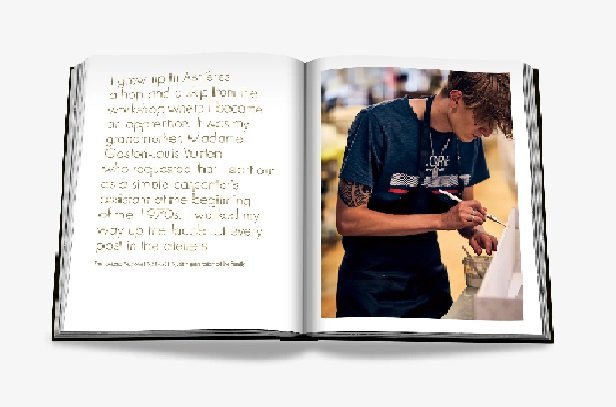 I grew up in Asnières
a hop and a skip from the
workshop where I became
an apprentice. It was my
grandmother, Madame
Gaston-Louis Vuitton
who requested that I start out
as a simple carpenter's
assistant at the beginning
of the 1970s. I worked my
way up the ladder at every
post in the ateliers